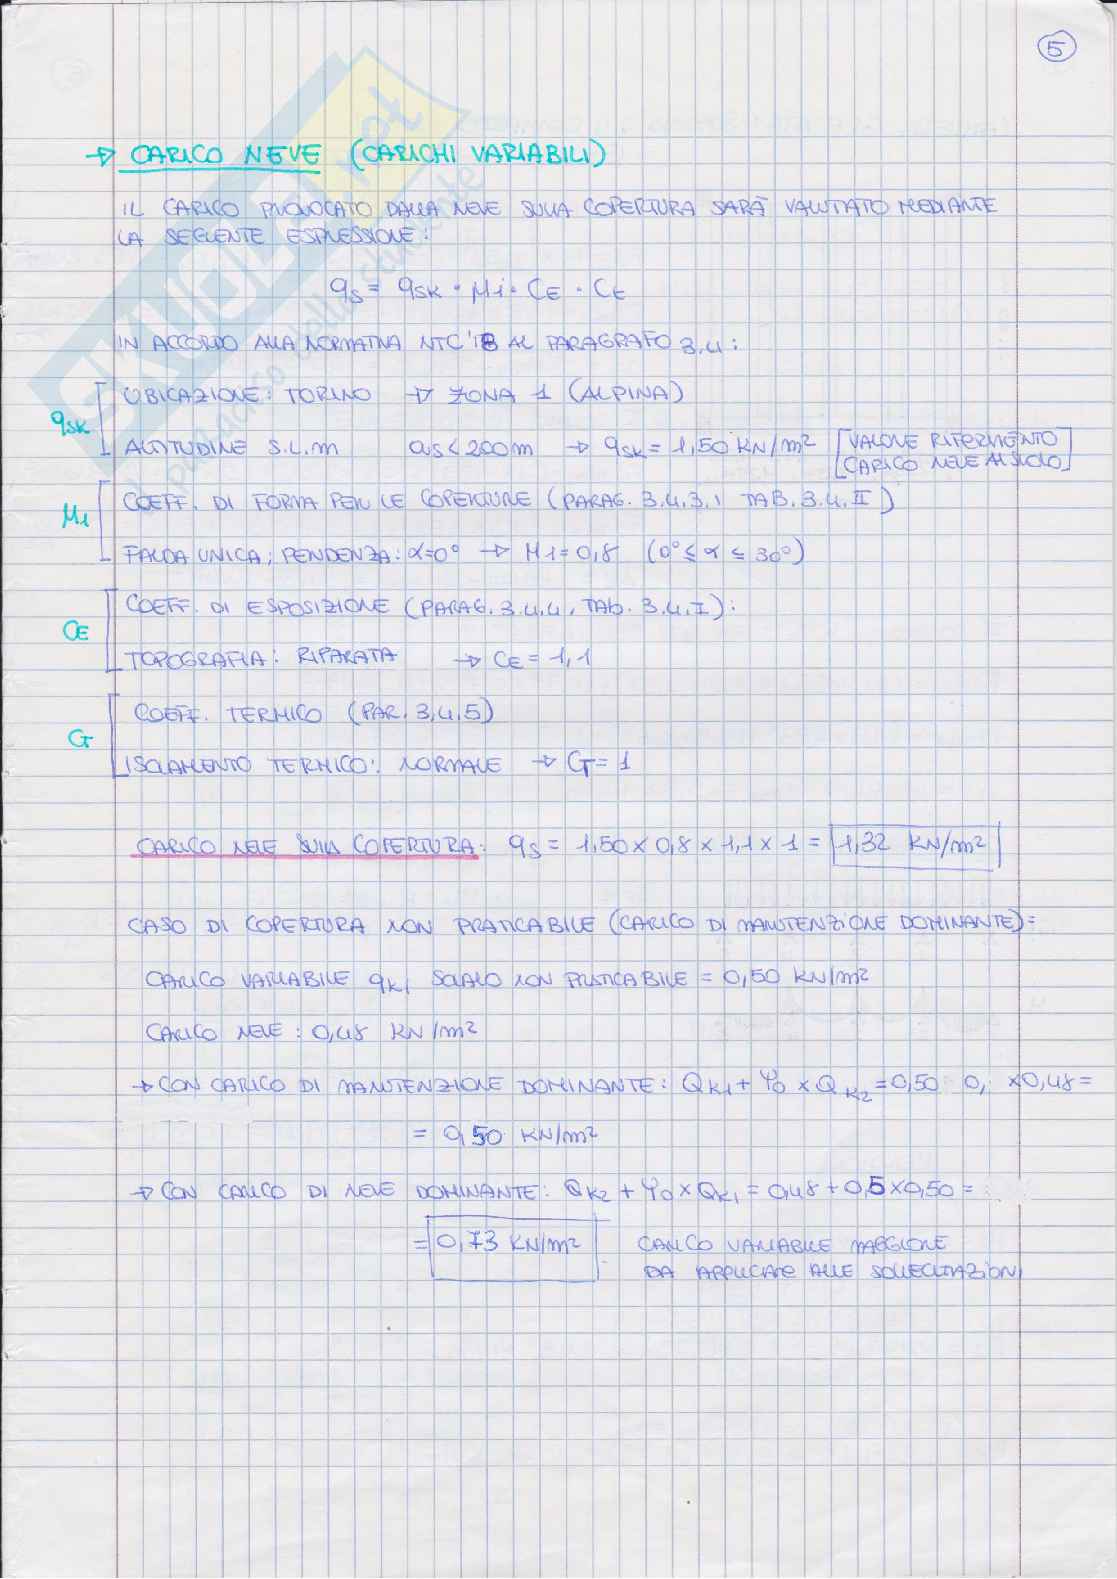 5
→ CARICO NEVE (CARICHI VARIABILI)
IL CARICO PROVOCATO DALLA NEVE SULLA COPERTURA SARÀ VALUTATO MEDIANTE
LA SEGUENTE ESPRESSIONE:
qs = qsk · μi · CE · CE
IN ACCORDO ALLA NORMATIVA NTC'18 AL PARAGRAFO 3.4:
qsk
UBICAZIONE: TORINO → ZONA 1 (ALPINA)
ALTITUDINE S.L.M as < 200m → qsk = 1,50 KN/m² [VALORE RIFERIMENTO
CARICO NEVE AL SUOLO]
μ1
COEFF. DI FORMA PER LE COPERTURE (PARAG. 3.4.3.1 TAB. 3.4.II)
FALDA UNICA; PENDENZA: α=0° → μ1=0,8 (0° ≤ α ≤ 30°)
CE
COEFF. DI ESPOSIZIONE (PARAG. 3.4.4, TAB. 3.4.I):
TOPOGRAFIA: RIPARATA → CE = 1,1
CT
COEFF. TERMICO (PAR. 3.4.5)
ISOLAMENTO TERMICO: NORMALE → CT = 1
CARICO NEVE SULLA COPERTURA: qs = 1,50 × 0,8 × 1,1 × 1 = 1,32 KN/m²
CASO DI COPERTURA NON PRATICABILE (CARICO DI MANUTENZIONE DOMINANTE):
CARICO VARIABILE qk1 SOLAIO NON PRATICABILE = 0,50 KN/m²
CARICO NEVE: 0,48 KN/m²
→ CON CARICO DI MANUTENZIONE DOMINANTE: Qk1 + ψ0 × Qk2 = 0,50 0, × 0,48 =
= 0,50 KN/m²
→ CON CARICO DI NEVE DOMINANTE: Qk2 + ψ0 × Qk1 = 0,48 + 0,5 × 0,50 =
= 0,73 KN/m² CARICO VARIABILE MAGGIORE
DA APPLICARE ALLE SOLLECITAZIONI